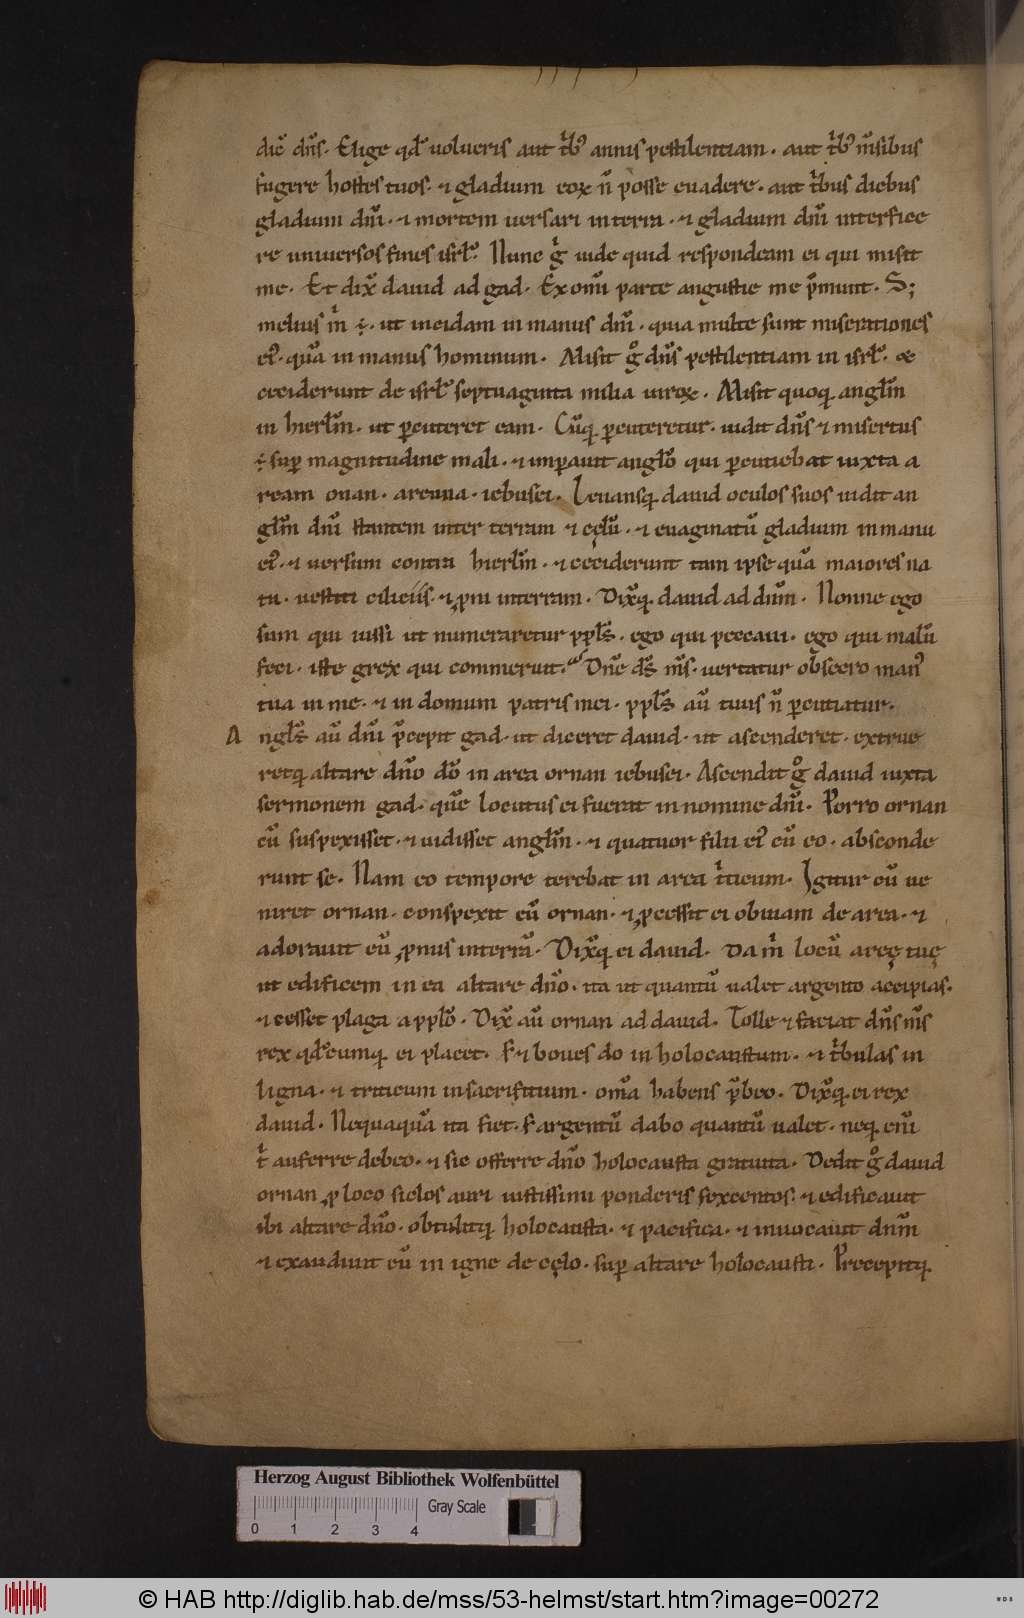 dic̄ dn̄s. Elige qd̄ volueris aut t͛b; annis pestilentiam. aut t͛b; m̄sibus
fugere hostes tuos. ⁊ gladium eoꝝ n̄ posse euadere. aut t͛bus diebus
gladium dn̄i. ⁊ mortem uersari in terra. ⁊ gladium dn̄i interfice
re uniuersos fines isrl̄. Nunc g͛ uide quid respondeam ei qui misit
me. Et dix̄ dauid ad gad. Ex om̄i parte angustie me p̄munt. S;
melius m͛ ÷. ut incidam in manus dn̄i. quia multe sunt miserationes
ei᷒. quā in manus hominum. Misit g° dn̄s pestilentiam in isrl̄. &
ceciderunt de isrl̄ septuaginta milia uiroꝝ. Misit quoq; angl̄m
in hierl̄m. ut ꝑcuteret eam. Cūq; ꝑcuteretur. uidit dn̄s ⁊ misertus
÷ suꝑ magnitudine mali. ⁊ impauit angl̄o qui ꝑcutiebat iuxta a
ream onan. areuna. iebusei. Leuansq; dauid oculos suos uidit an
gl̄m dn̄i stantem inter terram ⁊ cęlū. ⁊ euaginatū gladium in manu
ei᷒. ⁊ uersum contra hierl̄m. ⁊ ceciderunt tam ipse quā maiores na
tu. uestiti ciliciis. ⁊ ꝓni in terram. Dix̄q; dauid ad dn̄m. Nonne ego
sum qui iussi ut numeraretur ppl̄s. ego qui peccaui. ego qui malū
feci. iste grex qui commeruit. Dn̄e ds̄ m̄s. uertatur obsecro man᷒
tua in me. ⁊ in domum patris mei. ppl̄s aū tuus n̄ ꝑcutiatur.
A ngl̄s aū dn̄i p̄cepit gad. ut diceret dauid. ut ascenderet. extrue
retq; altare dn̄o dō in area ornan iebusei. Ascendit g° dauid iuxta
sermonem gad. quē locutus ei fuerat in nomine dn̄i. Porro ornan
cū suspexisset. ⁊ uidisset angl̄m. ⁊ quatuor filii ei᷒ cū eo. absconde
runt se. Nam eo tempore terebat in area t͛ticum. Igitur cū ue
niret ornan. conspexit eū ornan. ⁊ ꝓcessit ei obuiam de area. ⁊
adorauit eū ꝓnus in terrā. Dix̄q; ei dauid. Da m͛ locū areę tuę
ut edificem in ea altare dn̄o. ita ut quantū ualet argento accipias.
⁊ cesset plaga a ppl̄o. Dix̄ aū ornan ad dauid. Tolle ⁊ faciat dn̄s m̄s
rex qd̄cumq; ei placet. S; ⁊ boues do in holocaustum. ⁊ t͛bulas in
ligna. ⁊ triticum in sacrificium. om̄a habens p̄beo. Dix̄q; ei rex
dauid. Nequaquā ita fiet. s; argentū dabo quantū ualet. neq; eni̅
t͛ auferre debeo. ⁊ sic offerre dn̄o holocausta gratuita. Dedit g° dauid
ornan ꝓ loco siclos auri iustissimi ponderis sexcentos. ⁊ edificauit
ibi altare dn̄o. obtulitq; holocausta. ⁊ pacifica. ⁊ inuocauit dn̄m
⁊ exaudiuit eū in igne de cęlo. suꝑ altare holocausti. Precepitq;
Herzog August Bibliothek Wolfenbüttel
Gray Scale
0 1 2 3 4
© HAB http://diglib.hab.de/mss/53-helmst/start.htm?image=00272